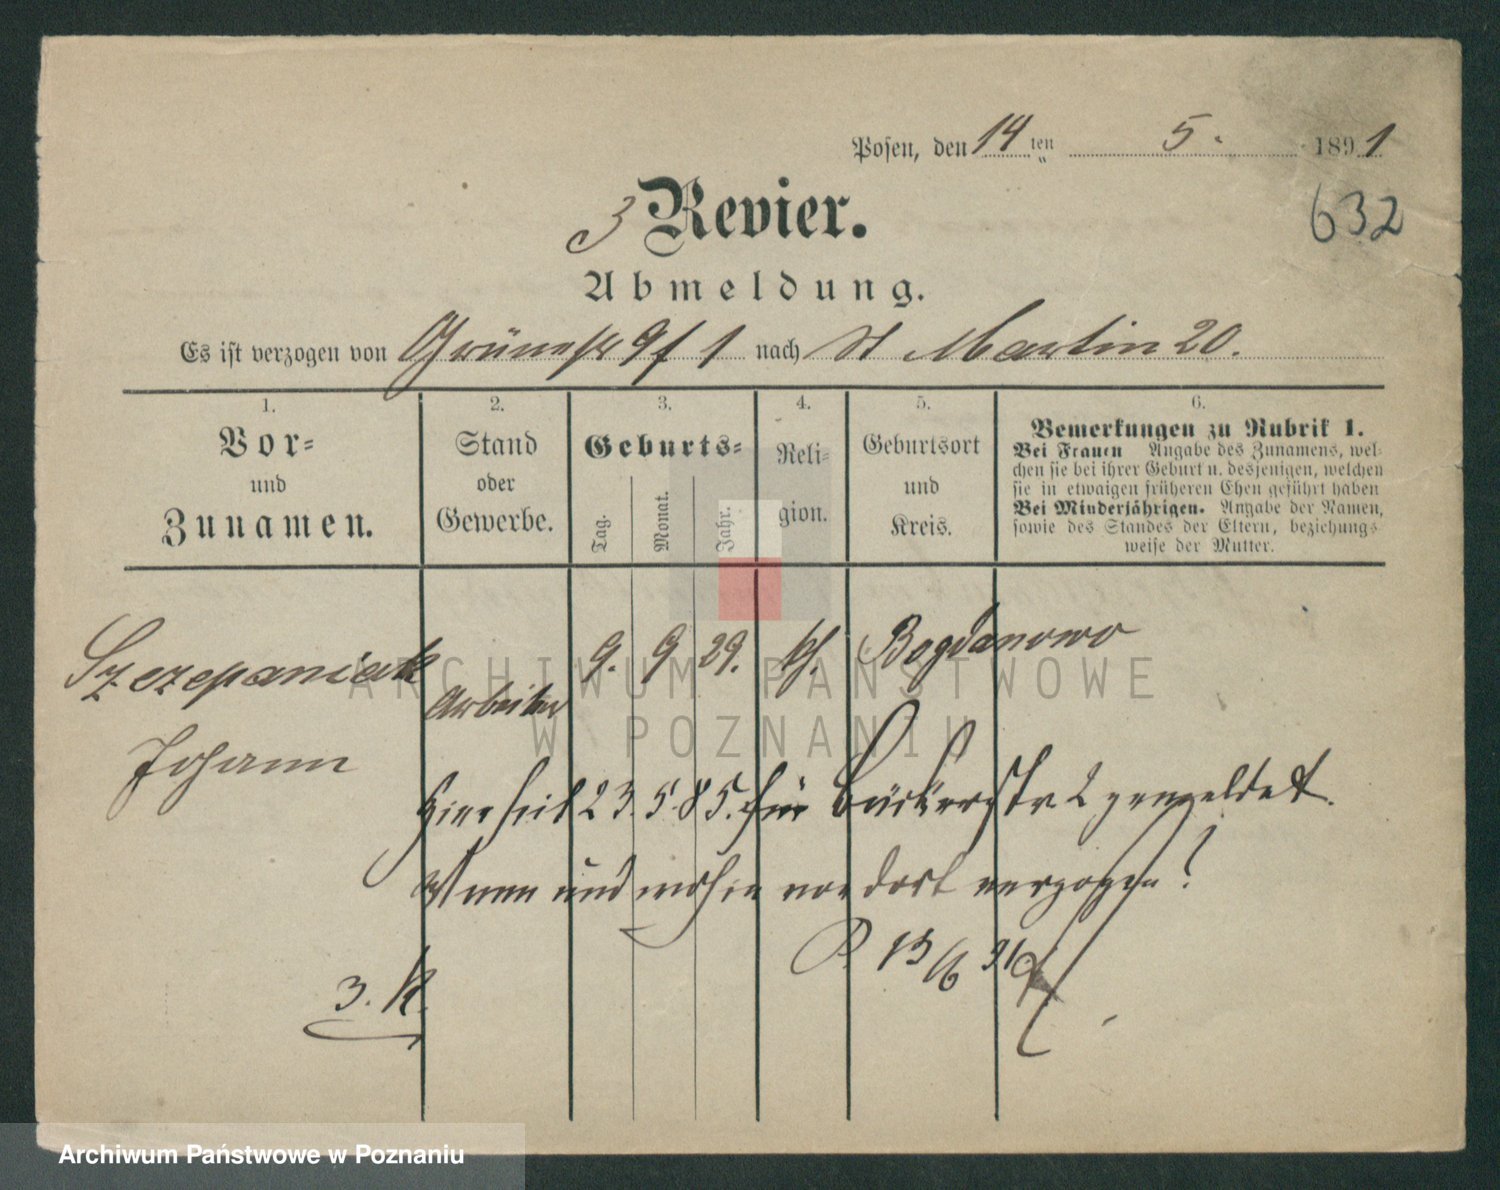 Posen, den 14 ten 5. 1891
632
3 Revier.
Abmeldung.
Es ist verzogen von Grünestr 9 f 1 nach St Martin 20.
1.
Vor-
und
Zunamen.
2.
Stand
oder
Gewerbe.
3.
Geburts-
Tag.
Monat.
Jahr.
4.
Reli-
gion.
5.
Geburtsort
und
Kreis.
6.
Bemerkungen zu Rubrik 1.
Bei Frauen Angabe des Zunamens, wel-
chen sie bei ihrer Geburt u. desjenigen, welchen
sie in etwaigen früheren Ehen geführt haben
Bei Minderjährigen. Angabe der Namen,
sowie des Standes der Eltern, beziehungs-
weise der Mutter.
Szczepaniak
Johann
Arbeiter
9. 9 29. kh. Bogdanowo
Hier seit 23.5.85. für Bäckerstr 2 gemeldet.
Wann und wohin von dort verzogen?
P. 13/6 91
3. K.
ARCHIWUM PAŃSTWOWE
W POZNANIU
Archiwum Państwowe w Poznaniu